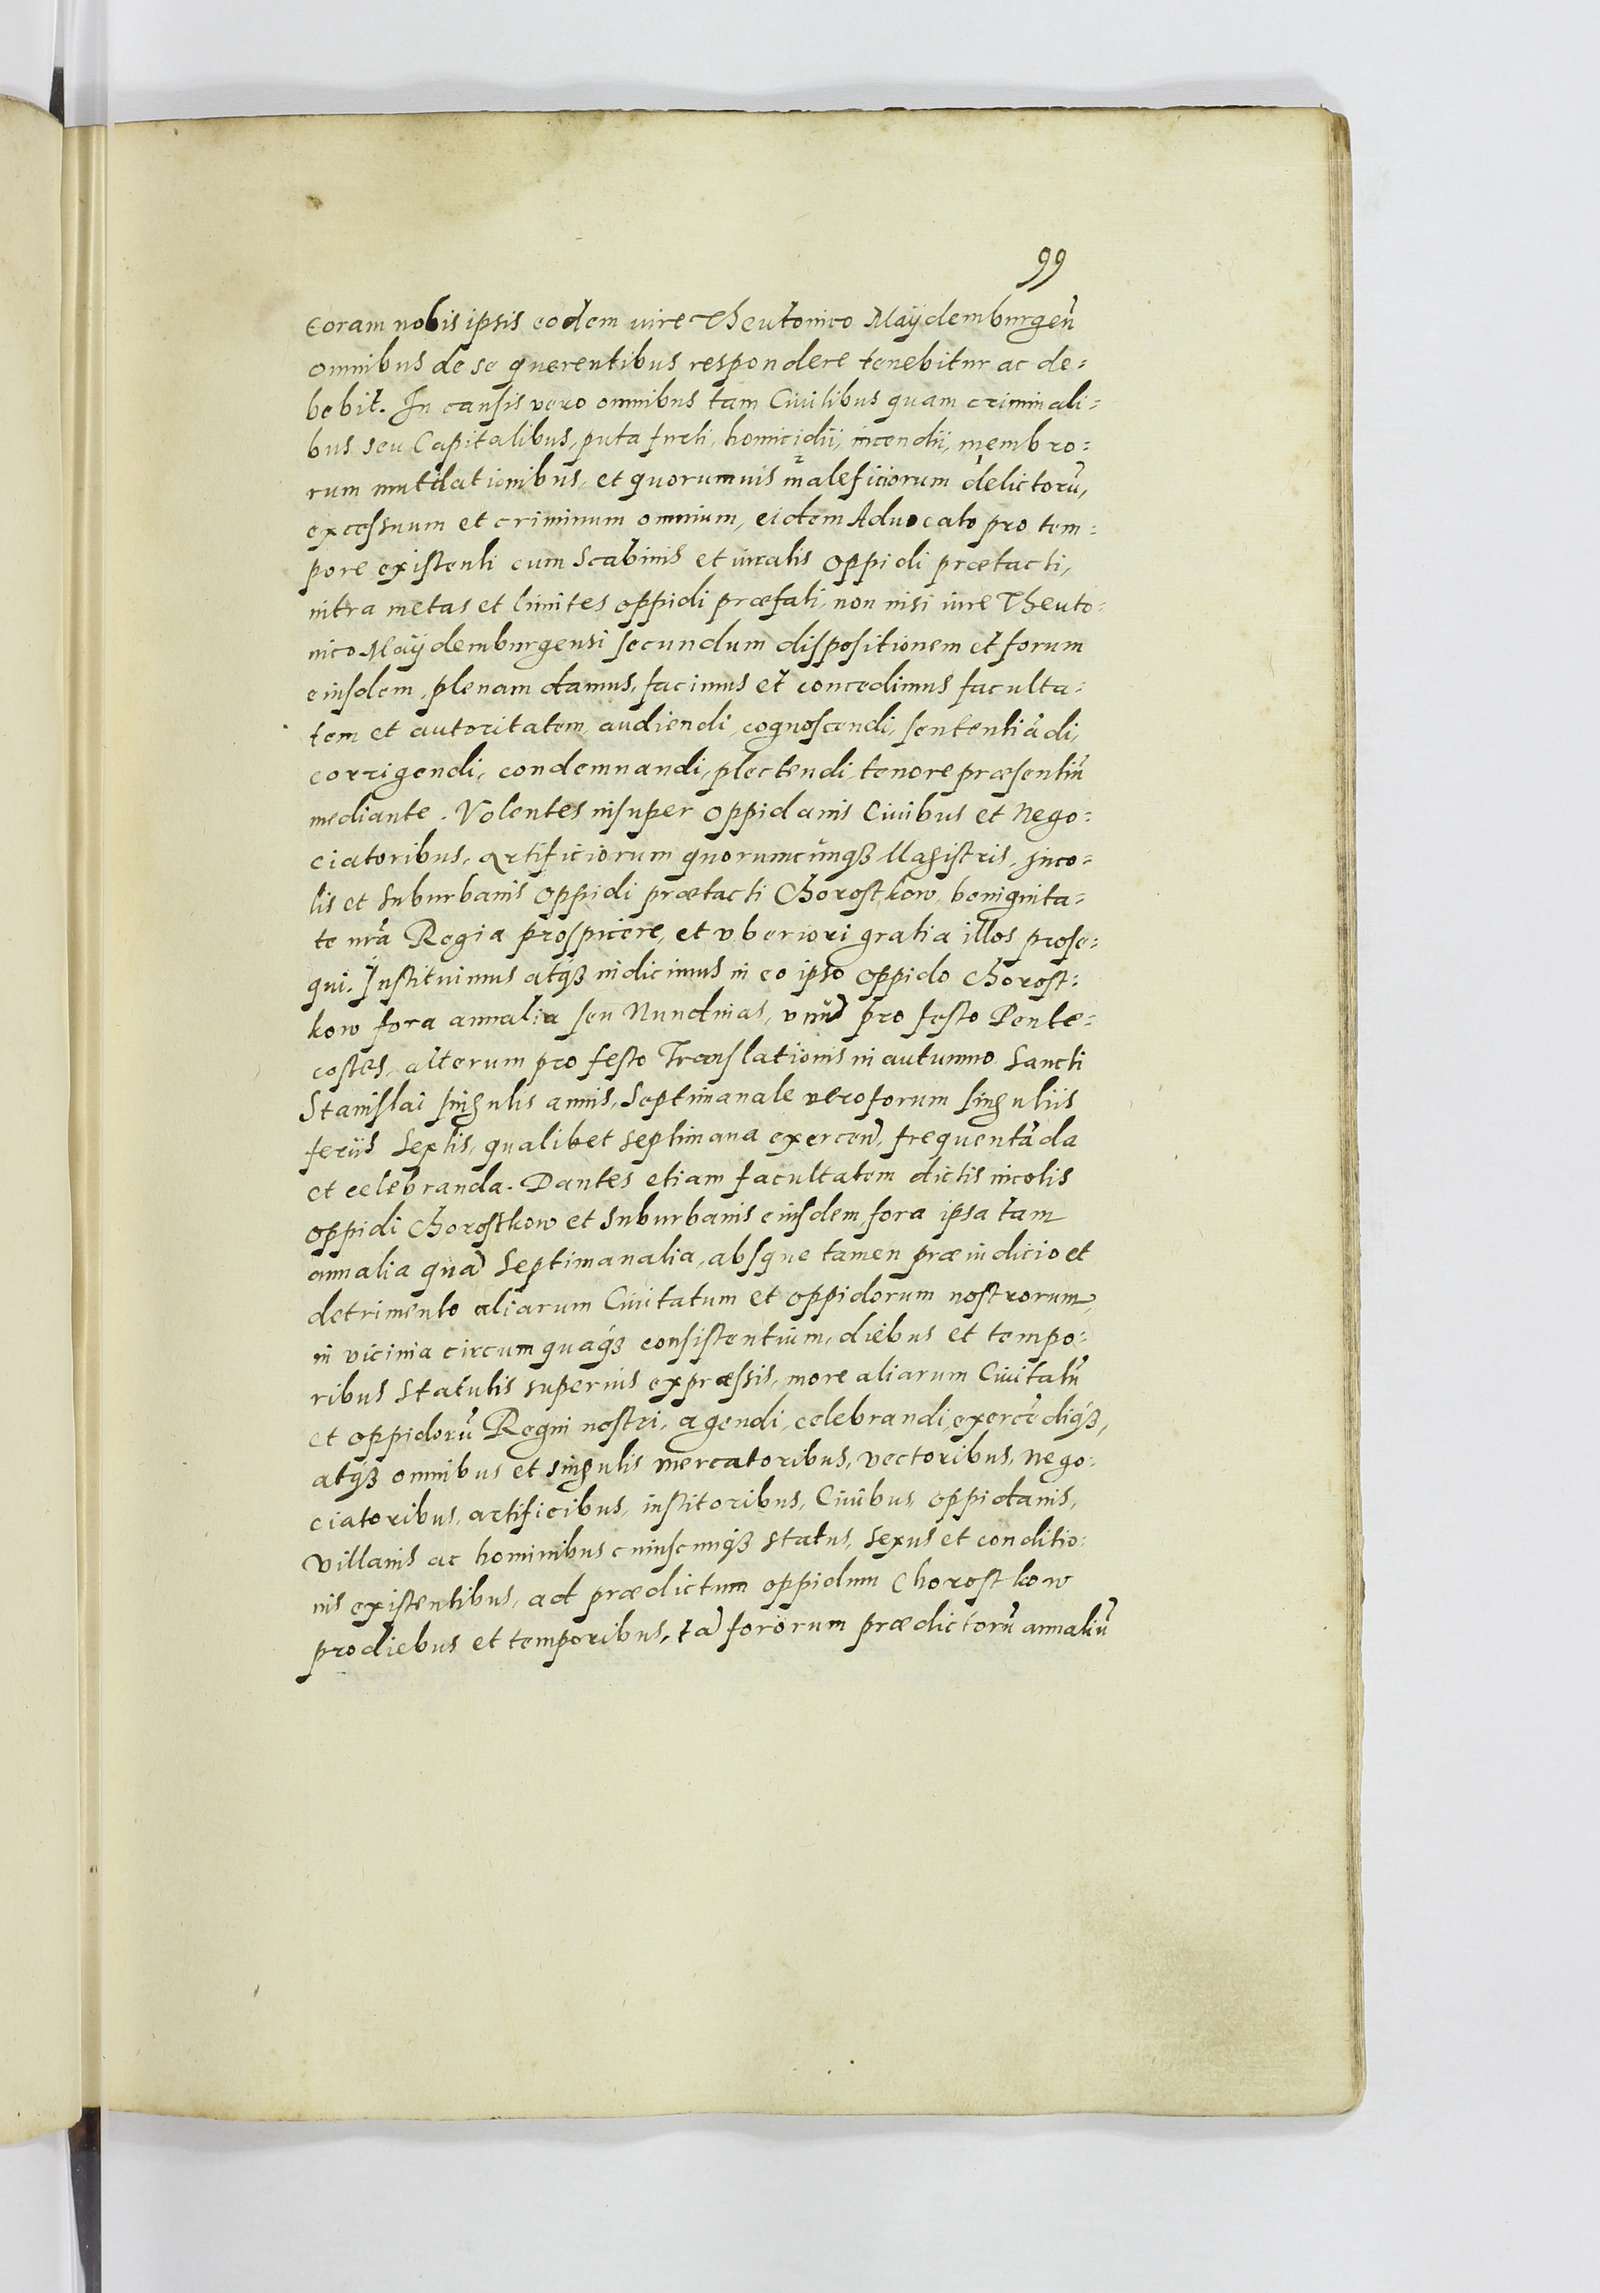 99
coram nobis ipsis eodem iure Theutonico Maÿdemburgeñ
omnibus de se querentibus respondere tenebitur ac de=
bebit. In causis vero omnibus tam Ciuilibus quam criminali=
bus seu Capitalibus, puta furti, homicidii, incendii, membro=
rum mutilationibus, et quorumuis maleficiorum delictorū,
excessuum et criminum omnium, eidem Aduocato pro tem=
pore existenti cum Scabinis et iuratis oppidi prætacti,
intra metas et limites oppidi præfati, non nisi iure Theuto=
nico Maÿdemburgensi secundum dispositionem et forum
eiusdem, plenam damus, facimus et concedimus faculta=
tem et autoritatem, audiendi, cognoscendi, sententiādi,
corrigendi, condemnandi, plectendi, tenore præsentiū
mediante. Volentes insuper oppidanis Ciuibus et Nego=
ciatoribus, artificiorum quorumcunqȝ Magistris, Inco=
lis et suburbanis oppidi prætacti Chorostkow, benignita=
te nr̃a Regia prospicere, et vberiori gratia illos prose=
qui. Instituimus atqȝ indicimus in eo ipso oppido Chorost=
kow fora annalia seu Nundinas, vnū pro festo Pente=
costes, alterum pro festo Translationis in autumno Sancti
Stanislai singulis annis, Septimanale vero forum singuliis
feriis Sextis, qualibet septimana exerceñ, frequentāda
et celebranda. Dantes etiam facultatem dictis incolis
oppidi Chorostkow et suburbanis eiusdem, fora ipsa tam
annalia quā Septimanalia, absque tamen præiudicio et
detrimento aliarum Ciuitatum et oppidorum nostrorum,
in vicinia circumquaqȝ consistentium, diebus et tempo=
ribus statutis superius expræssis, more aliarum Ciuitatū
et oppidorū Regni nostri, agendi, celebrandi, exercēdiqȝ,
atqȝ omnibus et singulis mercatoribus, vectoribus, nego=
ciatoribus, artificibus, institoribus, Ciuibus, oppidanis,
villanis ac hominibus cuiuscunqȝ status, sexus et conditio=
nis existentibus, ad prædictum oppidum Chorostkow
pro diebus et temporibus, tā fororum prædictorū annaliū